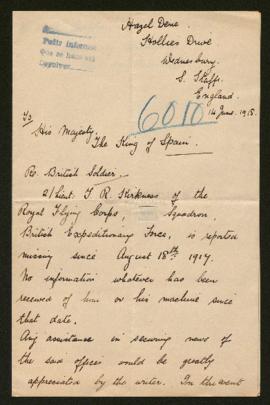 Hazel Dene.
Hollies Drive
Wednesbury.
S. Staffs.
England.
Devolver
6010
14 June. 1918.
To
His Majesty.
The King of Spain.
Re. British Soldier.
2/Lieut. T. R. Kirkness of the
Royal Flying Corps, Squadron,
British Expeditionary Force, is reported
missing since August 18th 1917.
No information whatever has been
received of him or his machine since
that date.
Any assistance in securing news of
the said officer would be greatly
appreciated by the writer. In the event